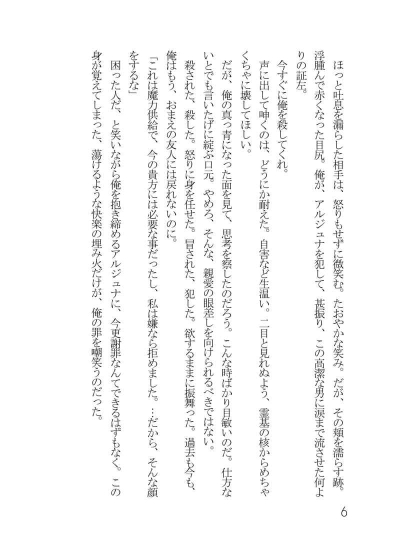 ほっと吐息を漏らした相手は、怒りもせずに微笑む。たおやかな笑み。だが、その頬を濡らす跡。
浮腫んで赤くなった目尻。俺が、アルジュナを犯して、甚振り、この高潔な男に涙まで流させた何よ
りの証左。
今すぐに俺を殺してくれ。
声に出して呻くのは、どうにか耐えた。自害など生温い。二目と見れぬよう、霊基の核からめちゃ
くちゃに壊してほしい。
だが、俺の真っ青になった面を見て、思考を察したのだろう。こんな時ばかり目敏いのだ。仕方な
いとでも言いたげに綻ぶ口元。やめろ、そんな、親愛の眼差しを向けられるべきではない。
殺された、殺した。怒りに身を任せた。冒された、犯した。欲するままに振舞った。過去も今も、
俺はもう、おまえの友人には戻れないのに。
「これは魔力供給で、今の貴方には必要な事だったし、私は嫌なら拒めました。…だから、そんな顔
をするな」
困った人だ、と笑いながら俺を抱き締めるアルジュナに、今更謝罪なんてできるはずもなく。この
身が覚えてしまった、蕩けるような快楽の埋み火だけが、俺の罪を嘲笑うのだった。
6